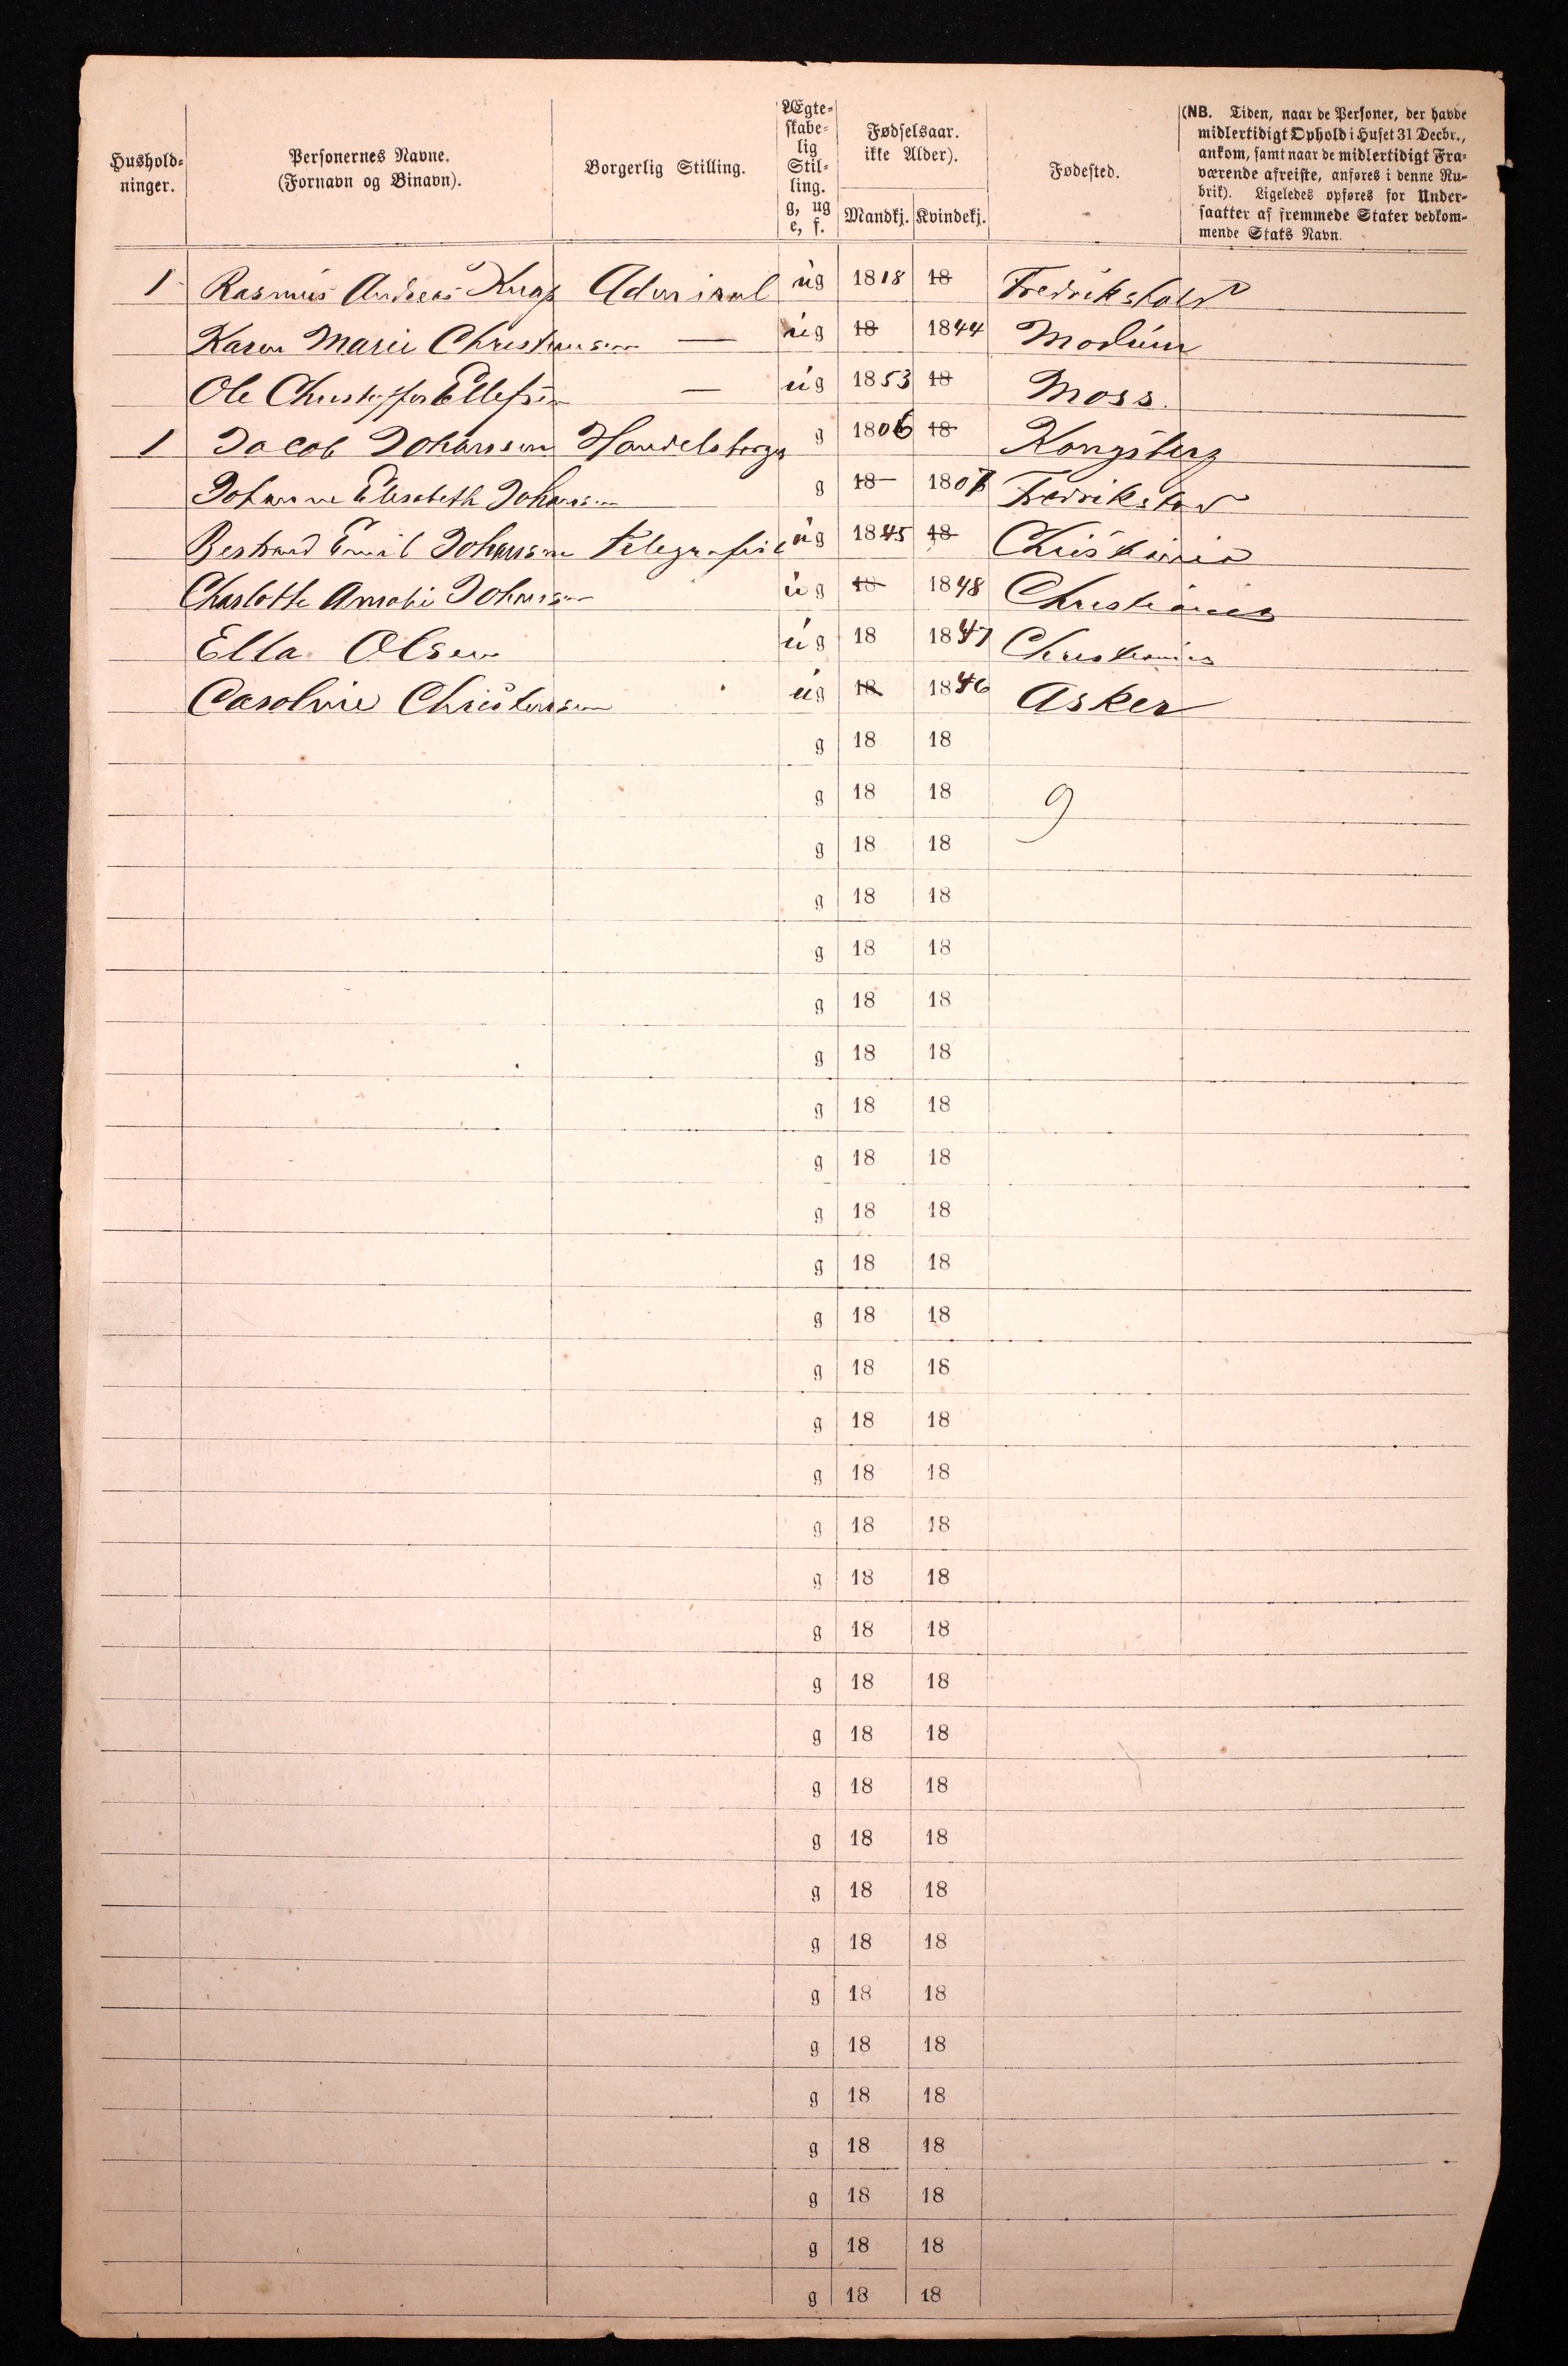 Hushold-
ninger.
Personernes Navne.
(Fornavn og Binavn).
Borgerlig Stilling.
Ægte-
skabe-
lig
Stil-
ling.
g, ug
e, f.
Fødselsaar.
ikke Alder).
Mandkj. Kvindekj.
Fødested.
(NB. Tiden, naar de Personer, der havde
midlertidigt Ophold i Huset 31 Decbr.,
ankom, samt naar de midlertidigt Fra-
værende afreiste, anføres i denne Ru-
brik). Ligeledes opføres for Under-
saatter af fremmede Stater vedkom-
mende Stats Navn.
1 Rasmus Andreas Krag Admiral ug 1818 18 Fredrikshald
Karen Marie Christiansen — ug 18 1844 Modum
Ole Christoffer Ellefsen — ug 1853 18 Moss.
1 Jacob Johanssen Handelsborger g 1806 18 Kongsberg
Johanne Elisabeth Johanssen g 18 1807 Fredrikstad
Bertrand Emil Johanssen Telegrafist ug 1845 18 Christiania
Charlotte Amalie Johanssen ug 18 1848 Christiania
Ella Olsen ug 18 1847 Christiania
Caroline Christensen ug 18 1846 Asker
g 18 18
g 18 18 9
g 18 18
g 18 18
g 18 18
g 18 18
g 18 18
g 18 18
g 18 18
g 18 18
g 18 18
g 18 18
g 18 18
g 18 18
g 18 18
g 18 18
g 18 18
g 18 18
g 18 18
g 18 18
g 18 18
g 18 18
g 18 18
g 18 18
g 18 18
g 18 18
g 18 18
g 18 18
g 18 18
g 18 18
g 18 18